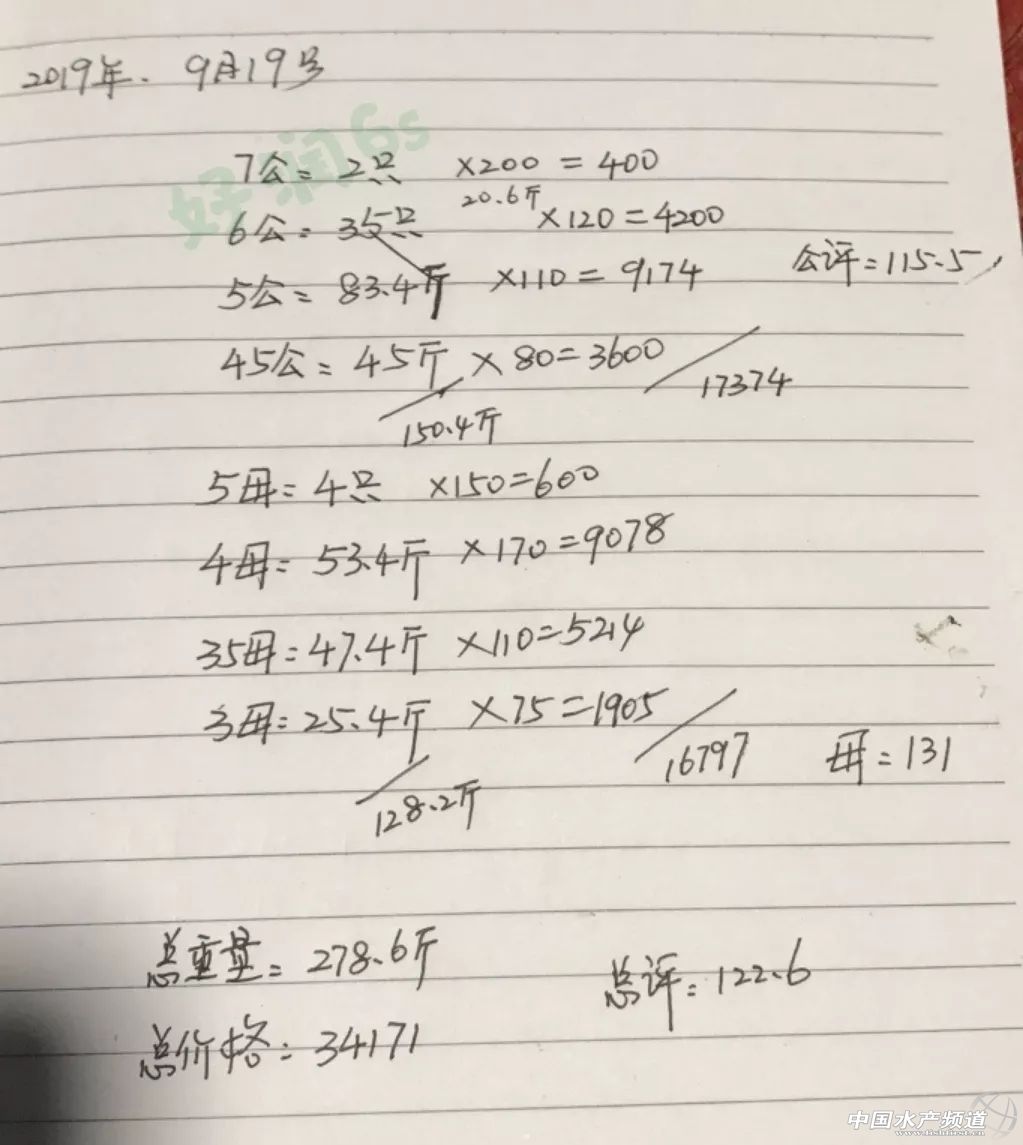 2019年. 9月19号
好润6s
7公=2只 ×200=400
20.6斤
6公=35只 ×120=4200
5公=83.4斤 ×110=9174 公评=115.5
45公=45斤 ×80=3600
17374
150.4斤
5母=4只 ×150=600
4母=53.4斤 ×170=9078
35母=47.4斤 ×110=5214
3母=25.4斤 ×75=1905
16797 母=131
128.2斤
总重量=278.6斤 总评=122.6
总价格=34171
中国水产频道
www.fishfirst.cn